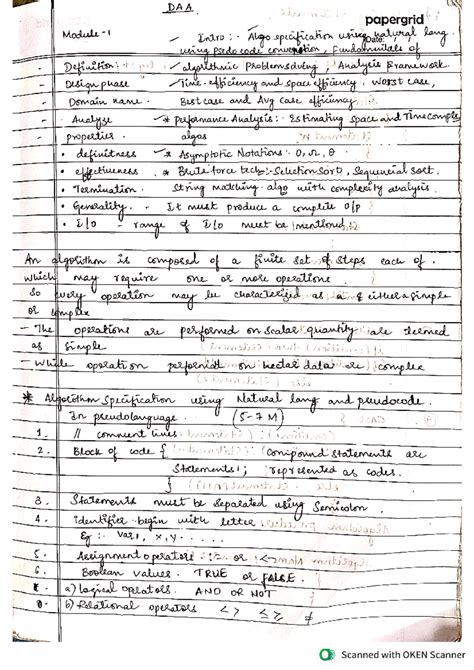 DAA
papergrid
Date:
Module-1 Intro:- Algo specification using natural lang
using Psedo code convention, Fundamentals of
- Definition ✓ algorithmic Problem solving, Analysis Framework.
- Design phase ✓ Time efficiency and space efficiency, Worst case,
- Domain name. Best case and Avg case efficiency
- Analyse ✓ * performance Analysis: Estimating space and Time comple
- properties. algos
• definitness ✓ * Asymptotic Notations: O, Ω, Θ
• effectiveness ✓ * Brute force tech:- Selection Sort, Sequencial Sort.
• Termination. String matching algo with complexity analysis.
• Generality. - It must produce a complete O/p
• I/O - range of I/O must be mentioned
An algorithm is composed of a finite set of steps each of
which may require one or more operations
So every operation may be characterized as a either a simple
or complex
- The operations are performed on scalar quantity are termed
as simple
- While operation performed on vector data are complex
* Algorithm Specification using Natural lang and pseudocode.
In pseudolanguage. (5-7 M)
1. // comment lines.
2. Block of code { Compound statements are
Statements; represented as codes.
}
3. Statements must be separated using Semicolon.
4. identifier begin with letter.
Eg:- var1, x, y ....
5. Assignment operators := or <-
6. Boolean values. TRUE or FALSE.
a) logical operators. AND OR NOT
b) Relational operators < > ≤ ≥ ≠
Scanned with OKEN Scanner